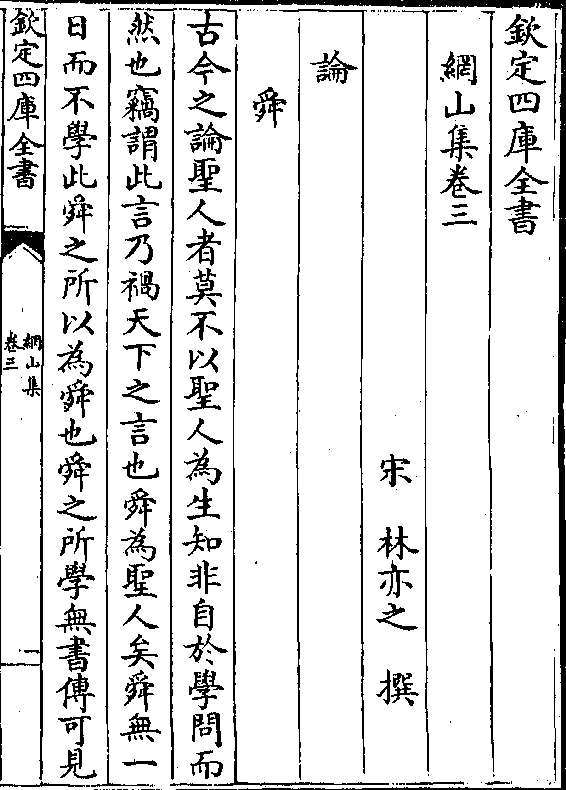 欽定四庫全書
網山集卷三
宋　林亦之　撰
論
舜
古今之論聖人者莫不以聖人為生知非自於學問而
然也竊謂此言乃禍天下之言也舜為聖人矣舜無一
日而不學此舜之所以為舜也舜之所學無書傳可見
欽定四庫全書
網山集
卷三
一